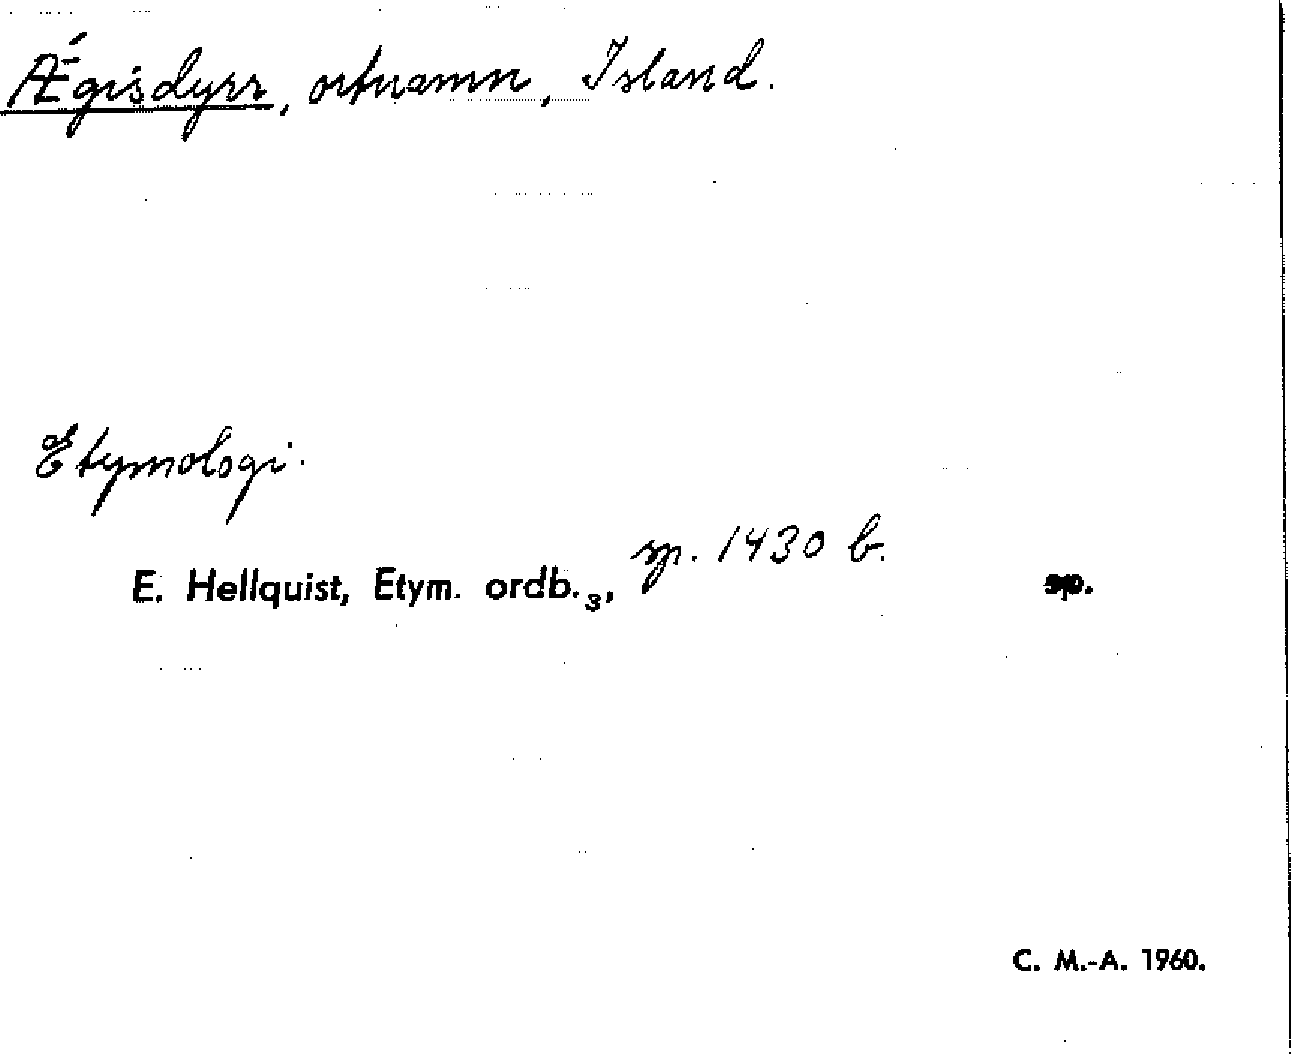 Ǽgisdyrr, ortnamn, Island.
Etymologi.
E. Hellquist, Etym. ordb.₃, sp. 1430 b. sp.
C. M.-A. 1960.